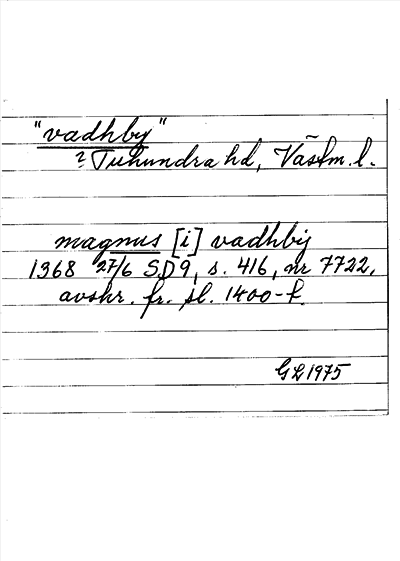 "vadhby"
? Tuhundra hd, Västm. l.
magnus [i] vadhbij
1368 27/6 SD9, s. 416, nr 7722,
avskr. fr. sl. 1400-t.
GL 1975